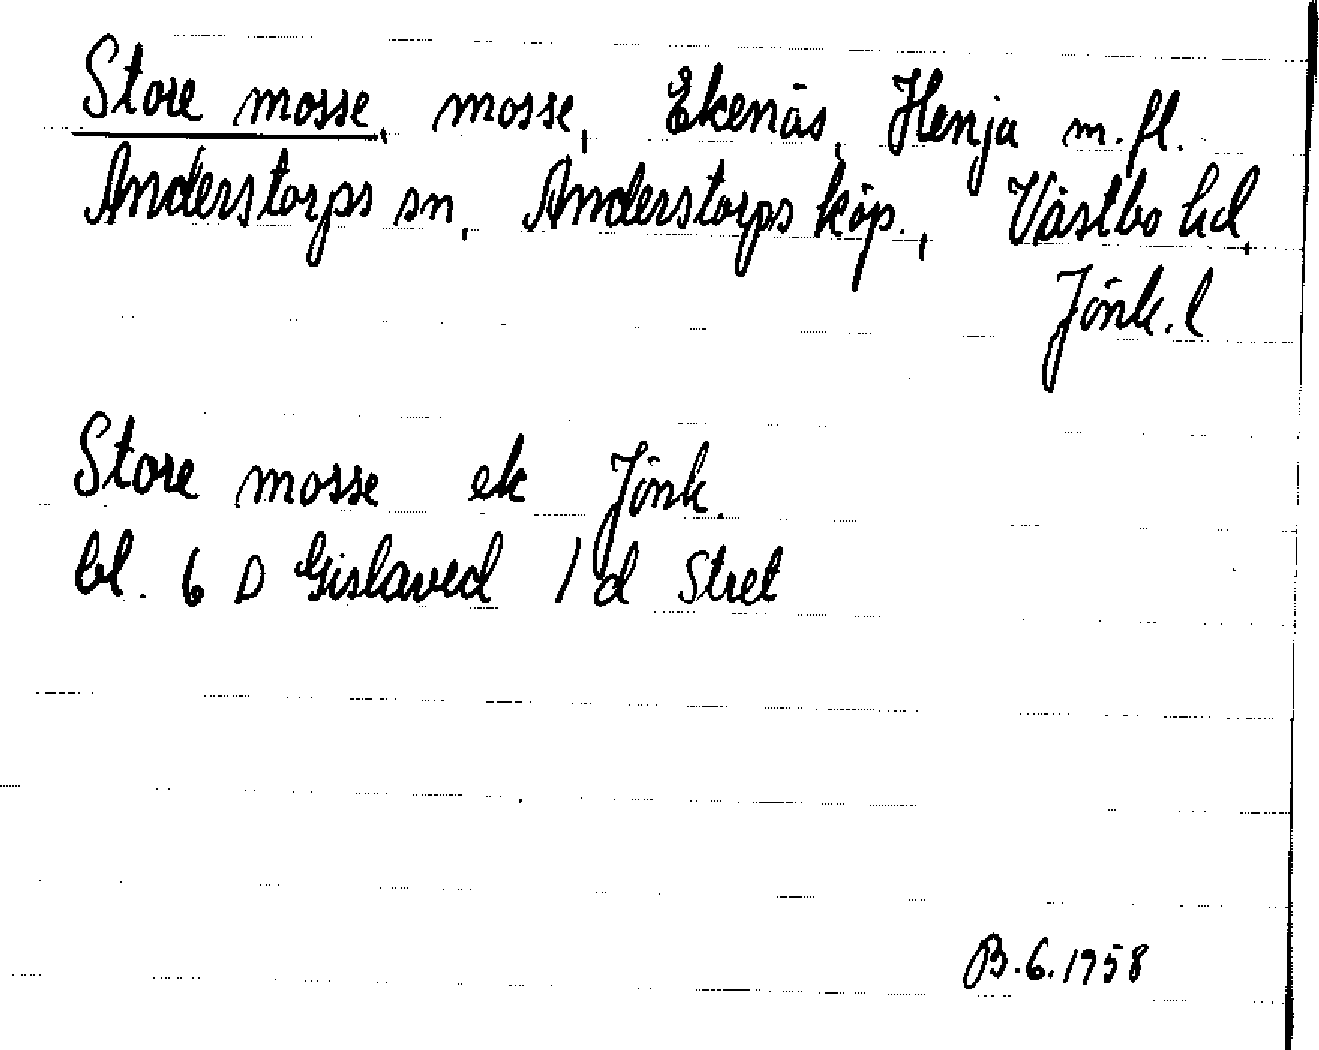 Store mosse, mosse, Ekenäs, Henja m.fl.
Anderstorps sn, Anderstorps köp., Västbo hd,
Jönk. l
Store mosse ek Jönk.
bl. 6 D Gislaved 1 d Stret
B.6.1958